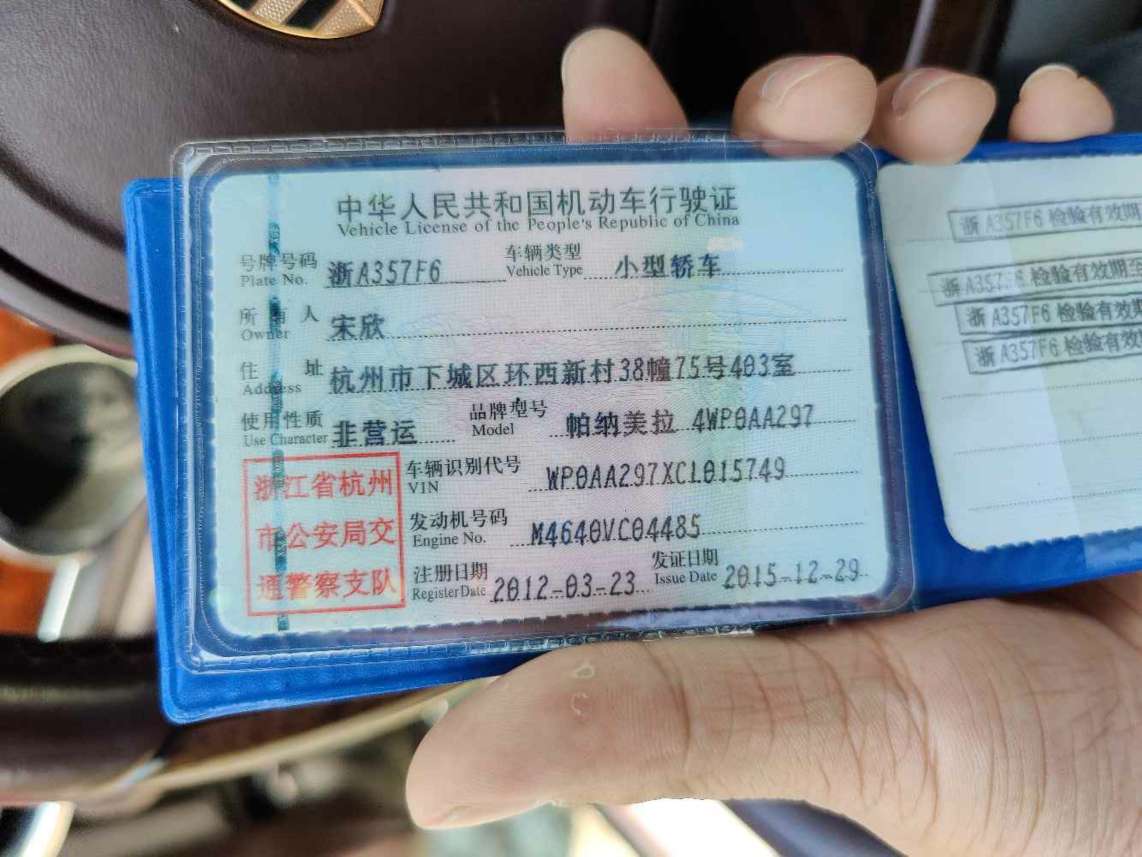 中华人民共和国机动车行驶证
Vehicle License of the People's Republic of China
号牌号码 浙A357F6 车辆类型 小型轿车
Plate No. Vehicle Type
所有人 宋欣
Owner
住址 杭州市下城区环西新村38幢75号403室
Address
使用性质 非营运 品牌型号 帕纳美拉 4WP0AA297
Use Character Model
车辆识别代号 WP0AA297XCL015749
VIN
发动机号码 M4640VC04485
Engine No.
注册日期 2012-03-23 发证日期 2015-12-29
Register Date Issue Date
浙江省杭州
市公安局交
通警察支队
浙A357F6 检验有效期
浙A357F6 检验有效期至
浙A357F6 检验有效期
浙A357F6 检验有效